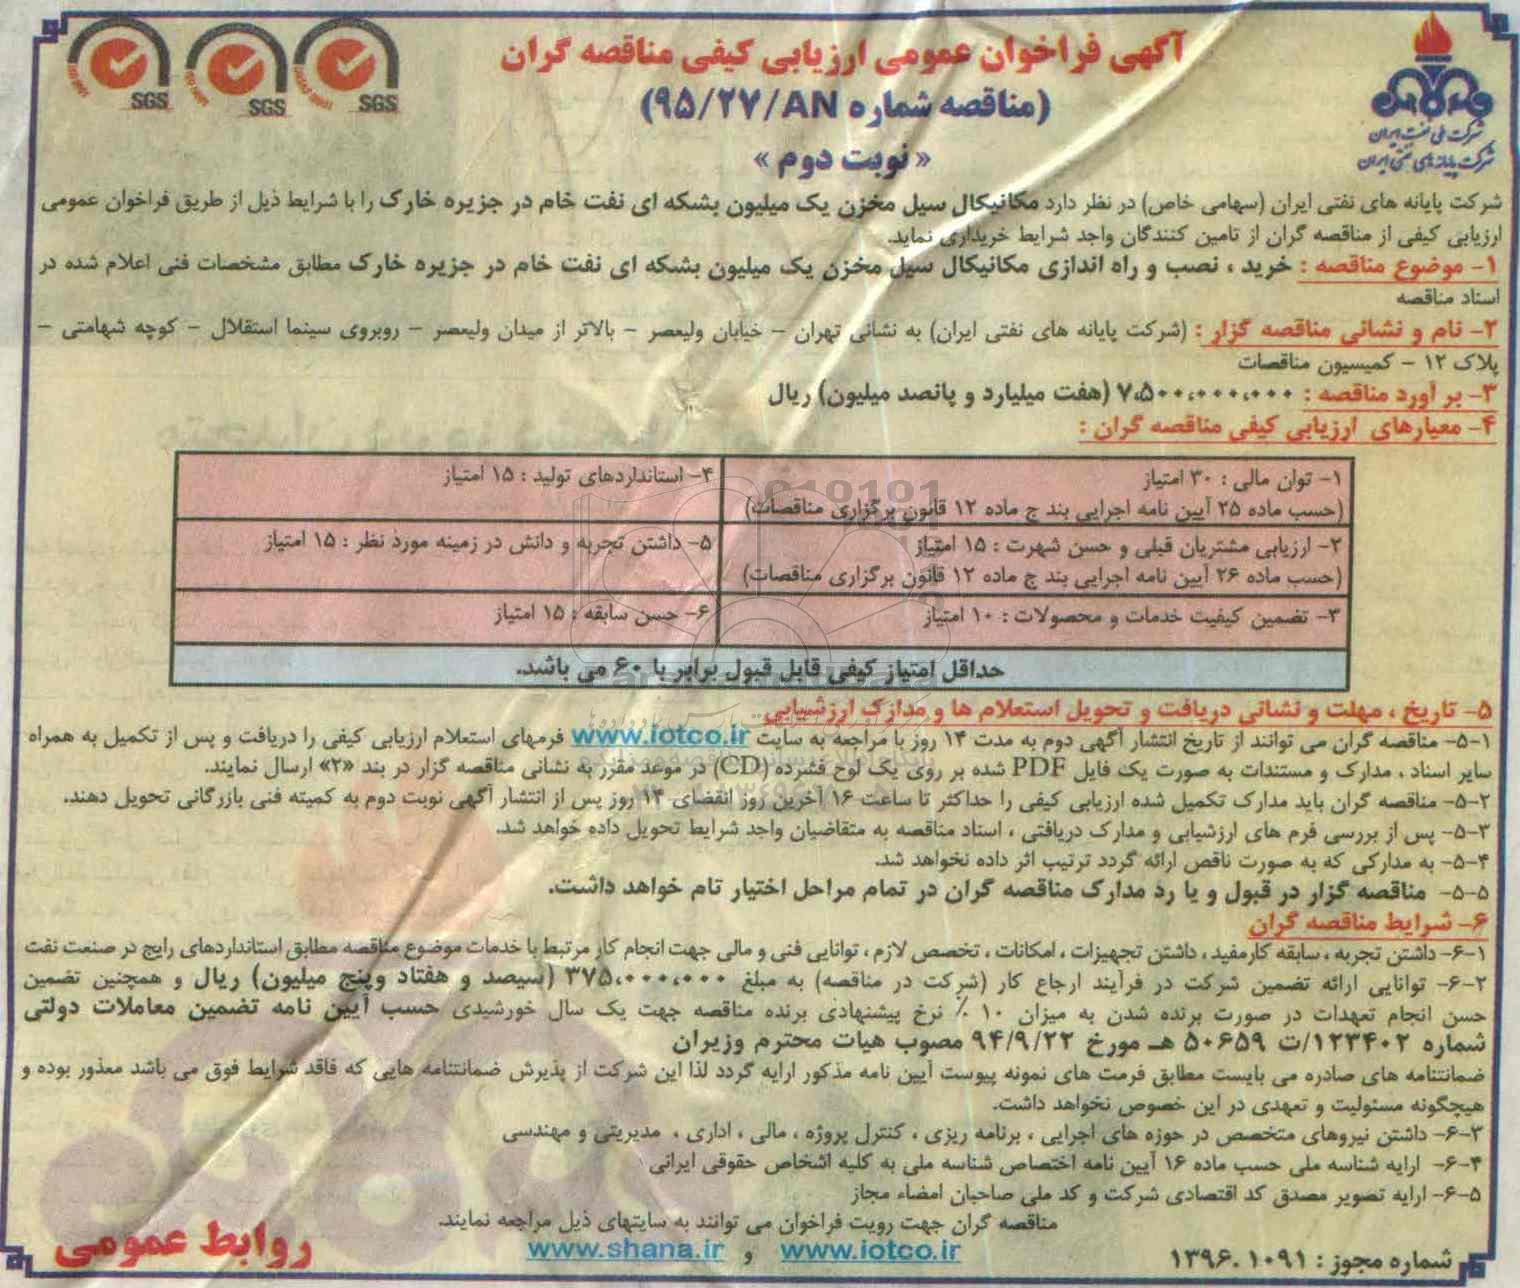 آگهی فراخوان عمومی ارزیابی کیفی مناقصه گران
(مناقصه شماره ۹۵/۲۷/AN)
« نوبت دوم »
شرکت ملی نفت ایران
شرکت پایانه های نفتی ایران
SGS
SGS
SGS
شرکت پایانه های نفتی ایران (سهامی خاص) در نظر دارد مکانیکال سیل مخزن یک میلیون بشکه ای نفت خام در جزیره خارک را با شرایط ذیل از طریق فراخوان عمومی
ارزیابی کیفی از مناقصه گران از تامین کنندگان واجد شرایط خریداری نماید.
۱- موضوع مناقصه : خرید ، نصب و راه اندازی مکانیکال سیل مخزن یک میلیون بشکه ای نفت خام در جزیره خارک مطابق مشخصات فنی اعلام شده در
اسناد مناقصه
۲- نام و نشانی مناقصه گزار : (شرکت پایانه های نفتی ایران) به نشانی تهران – خیابان ولیعصر – بالاتر از میدان ولیعصر – روبروی سینما استقلال – کوچه شهامتی –
پلاک ۱۲ – کمیسیون مناقصات
۳- بر آورد مناقصه : ۷،۵۰۰،۰۰۰،۰۰۰ (هفت میلیارد و پانصد میلیون) ریال
۴- معیارهای ارزیابی کیفی مناقصه گران :
۱- توان مالی : ۳۰ امتیاز
(حسب ماده ۲۵ آیین نامه اجرایی بند ج ماده ۱۲ قانون برگزاری مناقصات)
۴- استانداردهای تولید : ۱۵ امتیاز
۲- ارزیابی مشتریان قبلی و حسن شهرت : ۱۵ امتیاز
(حسب ماده ۲۶ آیین نامه اجرایی بند ج ماده ۱۲ قانون برگزاری مناقصات)
۵- داشتن تجربه و دانش در زمینه مورد نظر : ۱۵ امتیاز
۳- تضمین کیفیت خدمات و محصولات : ۱۰ امتیاز
۶- حسن سابقه : ۱۵ امتیاز
حداقل امتیاز کیفی قابل قبول برابر با ۶۰ می باشد.
۵- تاریخ ، مهلت و نشانی دریافت و تحویل استعلام ها و مدارک ارزشیابی
۵-۱- مناقصه گران می توانند از تاریخ انتشار آگهی دوم به مدت ۱۴ روز با مراجعه به سایت www.iotco.ir فرمهای استعلام ارزیابی کیفی را دریافت و پس از تکمیل به همراه
سایر اسناد ، مدارک و مستندات به صورت یک فایل PDF شده بر روی یک لوح فشرده (CD) در موعد مقرر به نشانی مناقصه گزار در بند «۲» ارسال نمایند.
۵-۲- مناقصه گران باید مدارک تکمیل شده ارزیابی کیفی را حداکثر تا ساعت ۱۶ آخرین روز انقضای ۱۴ روز پس از انتشار آگهی نوبت دوم به کمیته فنی بازرگانی تحویل دهند.
۵-۳- پس از بررسی فرم های ارزشیابی و مدارک دریافتی ، اسناد مناقصه به متقاضیان واجد شرایط تحویل داده خواهد شد.
۵-۴- به مدارکی که به صورت ناقص ارائه گردد ترتیب اثر داده نخواهد شد.
۵-۵- مناقصه گزار در قبول و یا رد مدارک مناقصه گران در تمام مراحل اختیار تام خواهد داشت.
۶- شرایط مناقصه گران
۶-۱- داشتن تجربه ، سابقه کارمفید ، داشتن تجهیزات ، امکانات ، تخصص لازم ، توانایی فنی و مالی جهت انجام کار مرتبط با خدمات موضوع مناقصه مطابق استانداردهای رایج در صنعت نفت
۶-۲- توانایی ارائه تضمین شرکت در فرآیند ارجاع کار (شرکت در مناقصه) به مبلغ ۳۷۵،۰۰۰،۰۰۰ (سیصد و هفتاد وپنج میلیون) ریال و همچنین تضمین
حسن انجام تعهدات در صورت برنده شدن به میزان ۱۰ ٪ نرخ پیشنهادی برنده مناقصه جهت یک سال خورشیدی حسب آیین نامه تضمین معاملات دولتی
شماره ۱۲۳۴۰۲/ت ۵۰۶۵۹ هـ مورخ ۹۴/۹/۲۲ مصوب هیات محترم وزیران
ضمانتنامه های صادره می بایست مطابق فرمت های نمونه پیوست آیین نامه مذکور ارایه گردد لذا این شرکت از پذیرش ضمانتنامه هایی که فاقد شرایط فوق می باشد معذور بوده و
هیچگونه مسئولیت و تعهدی در این خصوص نخواهد داشت.
۶-۳- داشتن نیروهای متخصص در حوزه های اجرایی ، برنامه ریزی ، کنترل پروژه ، مالی ، اداری ، مدیریتی و مهندسی
۶-۴- ارایه شناسه ملی حسب ماده ۱۶ آیین نامه اختصاص شناسه ملی به کلیه اشخاص حقوقی ایرانی
۶-۵- ارایه تصویر مصدق کد اقتصادی شرکت و کد ملی صاحبان امضاء مجاز
مناقصه گران جهت رویت فراخوان می توانند به سایتهای ذیل مراجعه نمایند.
www.iotco.ir و www.shana.ir
شماره مجوز : ۱۳۹۶.۱۰۹۱
روابط عمومی